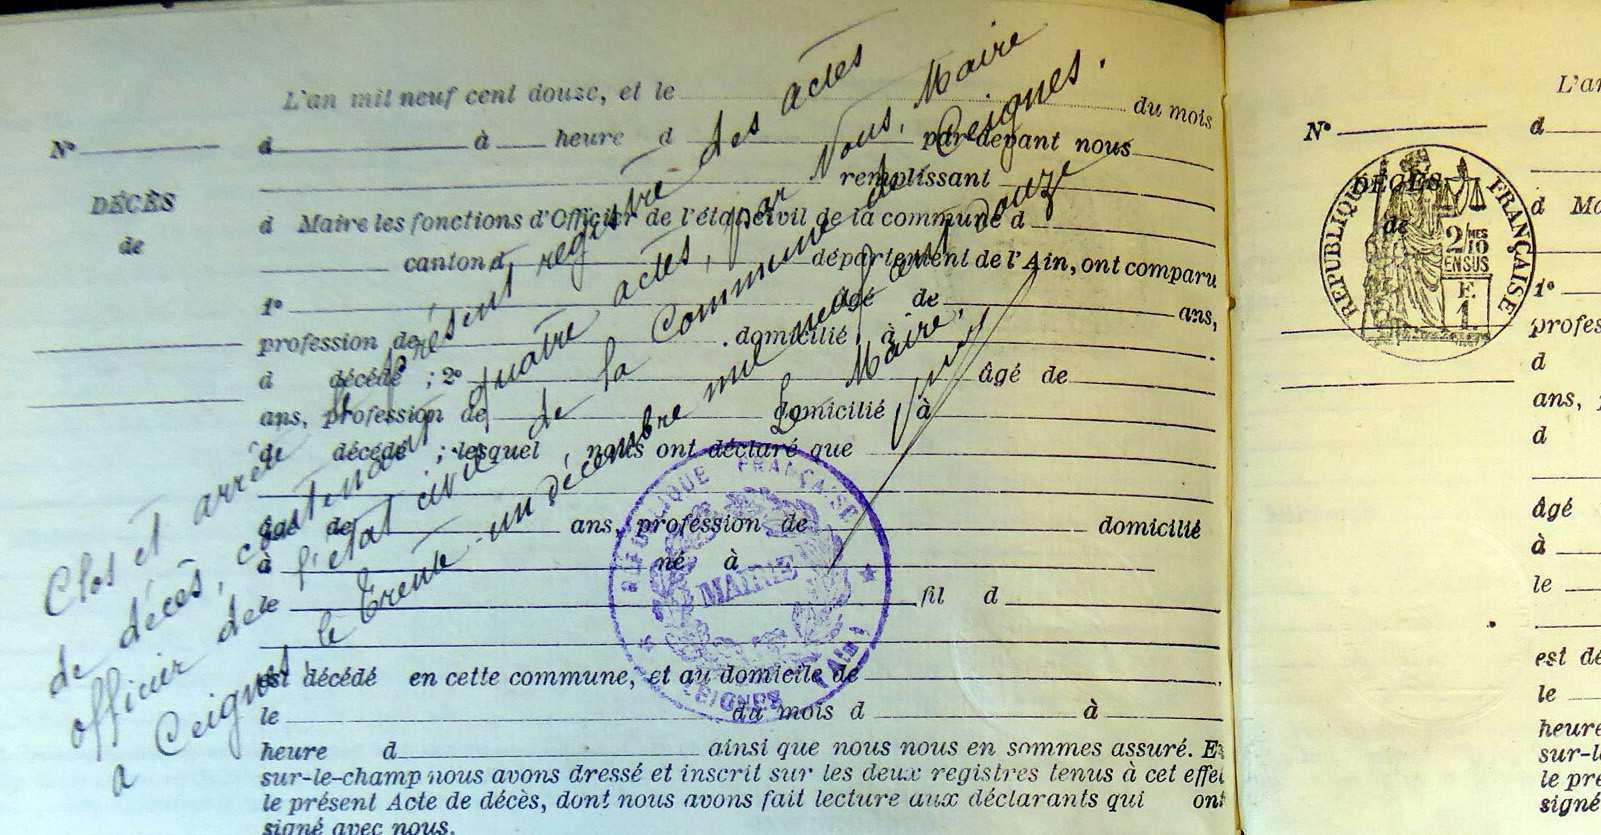 L'an mil neuf cent douze, et le du mois
N° d à heure d par-devant nous
remplissant
DÉCÈS
de
d Maire les fonctions d'Officier de l'état civil de la commune d
canton d département de l'Ain, ont comparu
1° âgé de ans,
profession de domicilié à
d décédé ; 2° âgé de
ans, profession de domicilié à
d décédé ; lesquel nous ont déclaré que
âgé de ans, profession de domicilié
à né à
le fil d
est décédé en cette commune, et au domicile de
le du mois d à
heure d ainsi que nous nous en sommes assuré. Et
sur-le-champ nous avons dressé et inscrit sur les deux registres tenus à cet effet
le présent Acte de décès, dont nous avons fait lecture aux déclarants qui ont
signé avec nous.
Clos et arrêté le présent registre des actes
de décès, contenant quatre actes, par Nous, Maire
officier de l'état civil de la Commune de Ceignes.
a Ceignes, le trente-un décembre mil neuf cent douze
Le Maire,
RÉPUBLIQUE FRANÇAISE
MAIRIE
CEIGNES (Ain)
L'an
N° d
DÉCÈS
de
RÉPUBLIQUE FRANÇAISE
2/10 MES
EN SUS
F.
1.
d Ma
1°
profes
d
ans,
d
âgé
à
le
est dé
le
heure
sur-le
le pré
signé